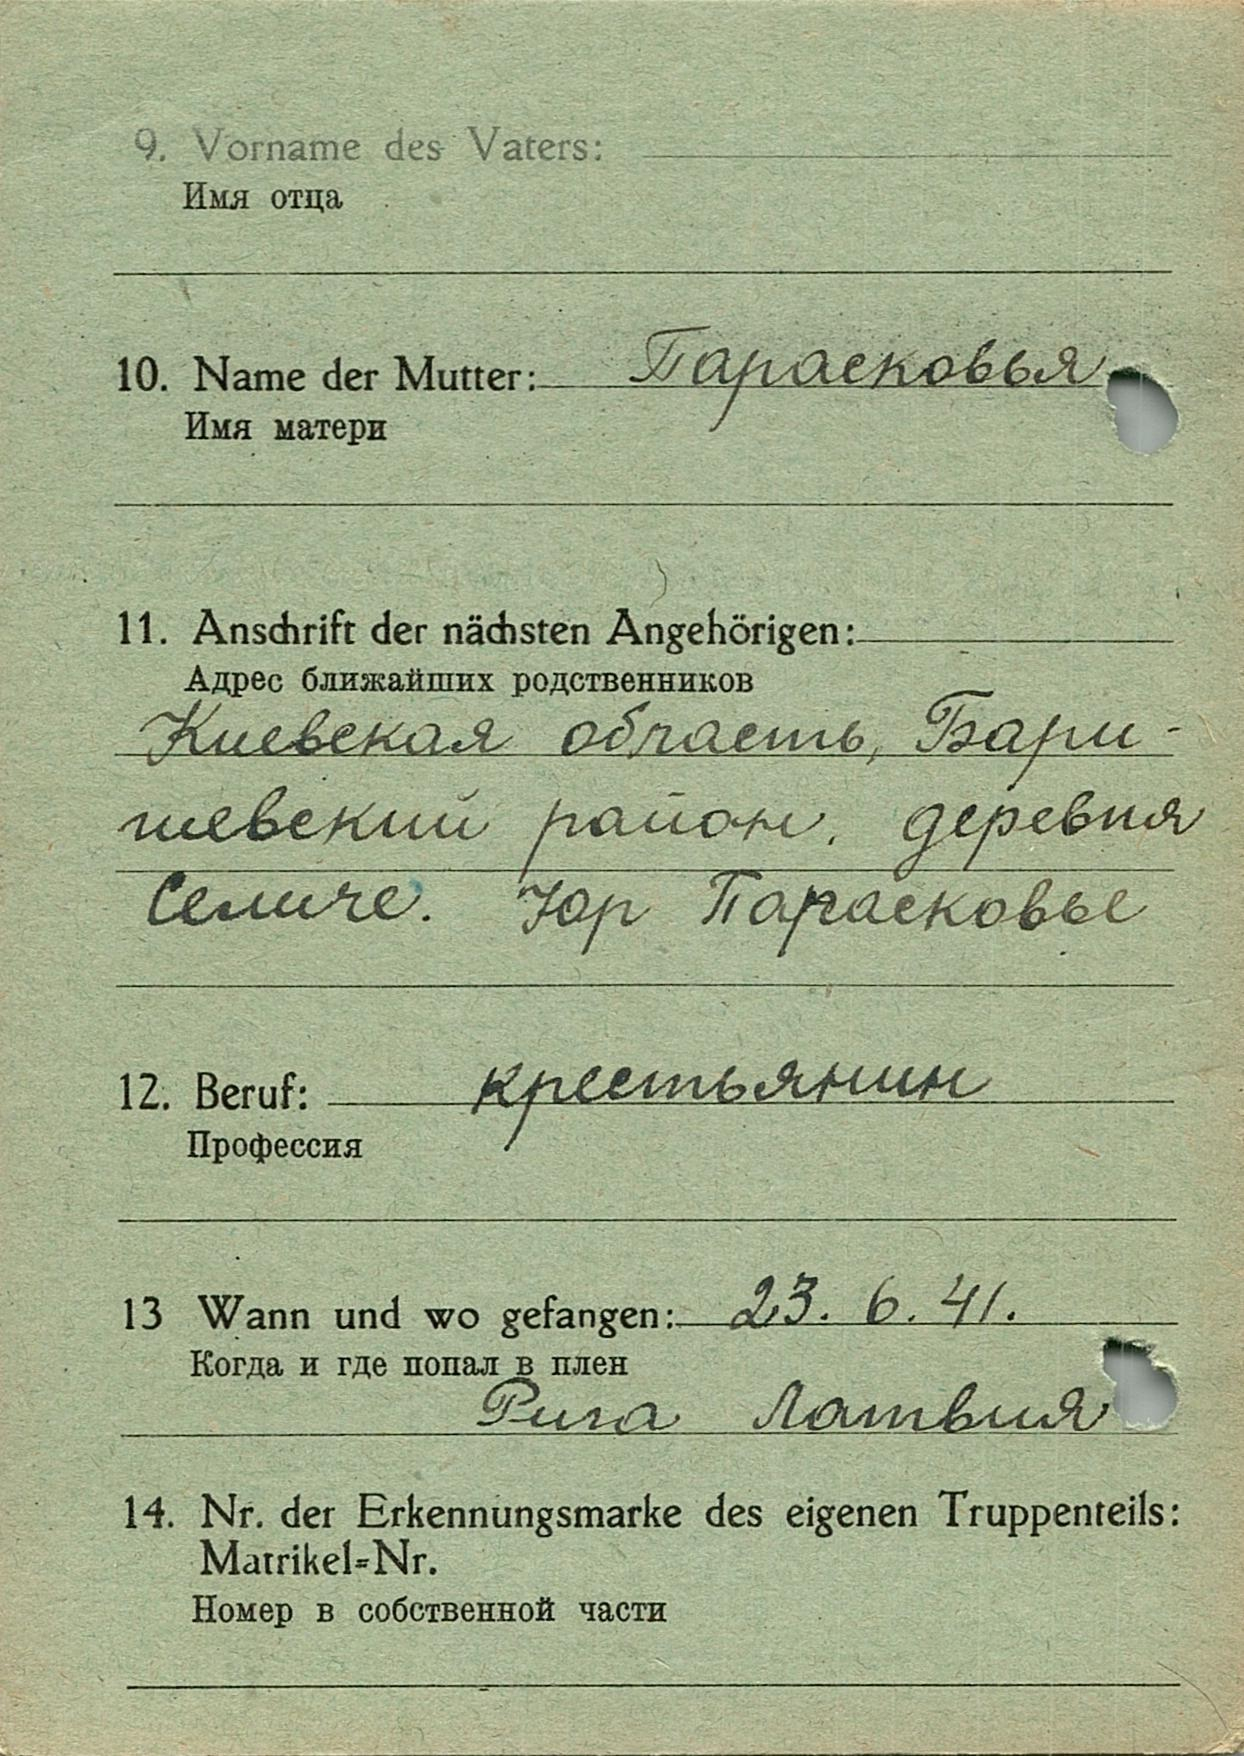 9. Vorname des Vaters:
Имя отца
10. Name der Mutter: Парасковья
Имя матери
11. Anschrift der nächsten Angehörigen:
Адрес ближайших родственников
Киевская область, Бари-
шевский район. деревня
Селиче. Юр Парасковье
12. Beruf: крестьянин
Профессия
13 Wann und wo gefangen: 23. 6. 41.
Когда и где попал в плен
Рига Латвия
14. Nr. der Erkennungsmarke des eigenen Truppenteils:
Matrikel=Nr.
Номер в собственной части